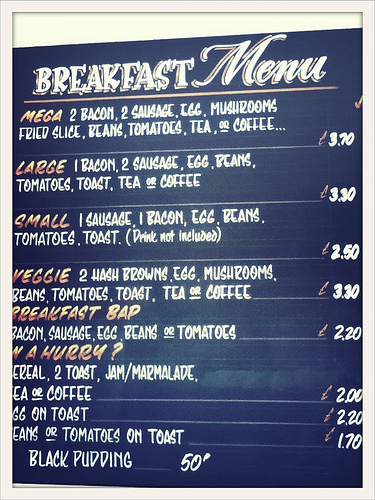 BREAKFAST Menu
MEGA 2 BACON, 2 SAUSAGE, EGG, MUSHROOMS
FRIED SLICE, BEANS, TOMATOES, TEA, OR COFFEE...
£ 3.70
LARGE 1 BACON, 2 SAUSAGE, EGG, BEANS,
TOMATOES, TOAST, TEA OR COFFEE
£ 3.30
SMALL 1 SAUSAGE, 1 BACON, EGG, BEANS,
TOMATOES, TOAST. (Drink not included)
£ 2.50
VEGGIE 2 HASH BROWNS, EGG, MUSHROOMS,
BEANS, TOMATOES, TOAST, TEA OR COFFEE £ 3.30
BREAKFAST BAP
BACON, SAUSAGE, EGG, BEANS OR TOMATOES £ 2.20
N A HURRY?
EREAL, 2 TOAST, JAM/MARMALADE,
EA OR COFFEE £ 2.00
GG ON TOAST £ 2.20
EANS OR TOMATOES ON TOAST £ 1.70
BLACK PUDDING 50P